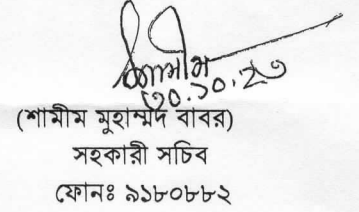 শামীম
৩০.১০.২৩
(শামীম মুহাম্মদ বাবর)
সহকারী সচিব
ফোনঃ ৯১৮০৮৮২